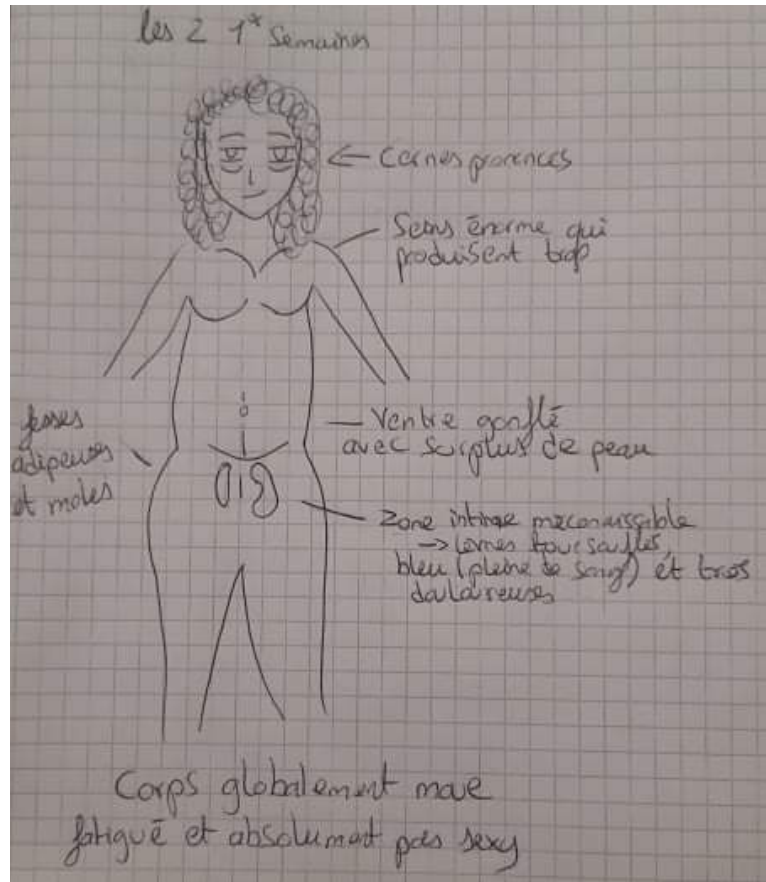 les 2 1* semaines
← Cernes prononcés
Seins énorme qui
produisent trop
fesses
adipeuses
et moles
Ventre gonflé
avec surplus de peau
Zone intime méconnaissable
→ lèvres boursouflés,
bleu (pleine de sang) et très
douloureuses
Corps globalement
fatigué et absolument pas sexy